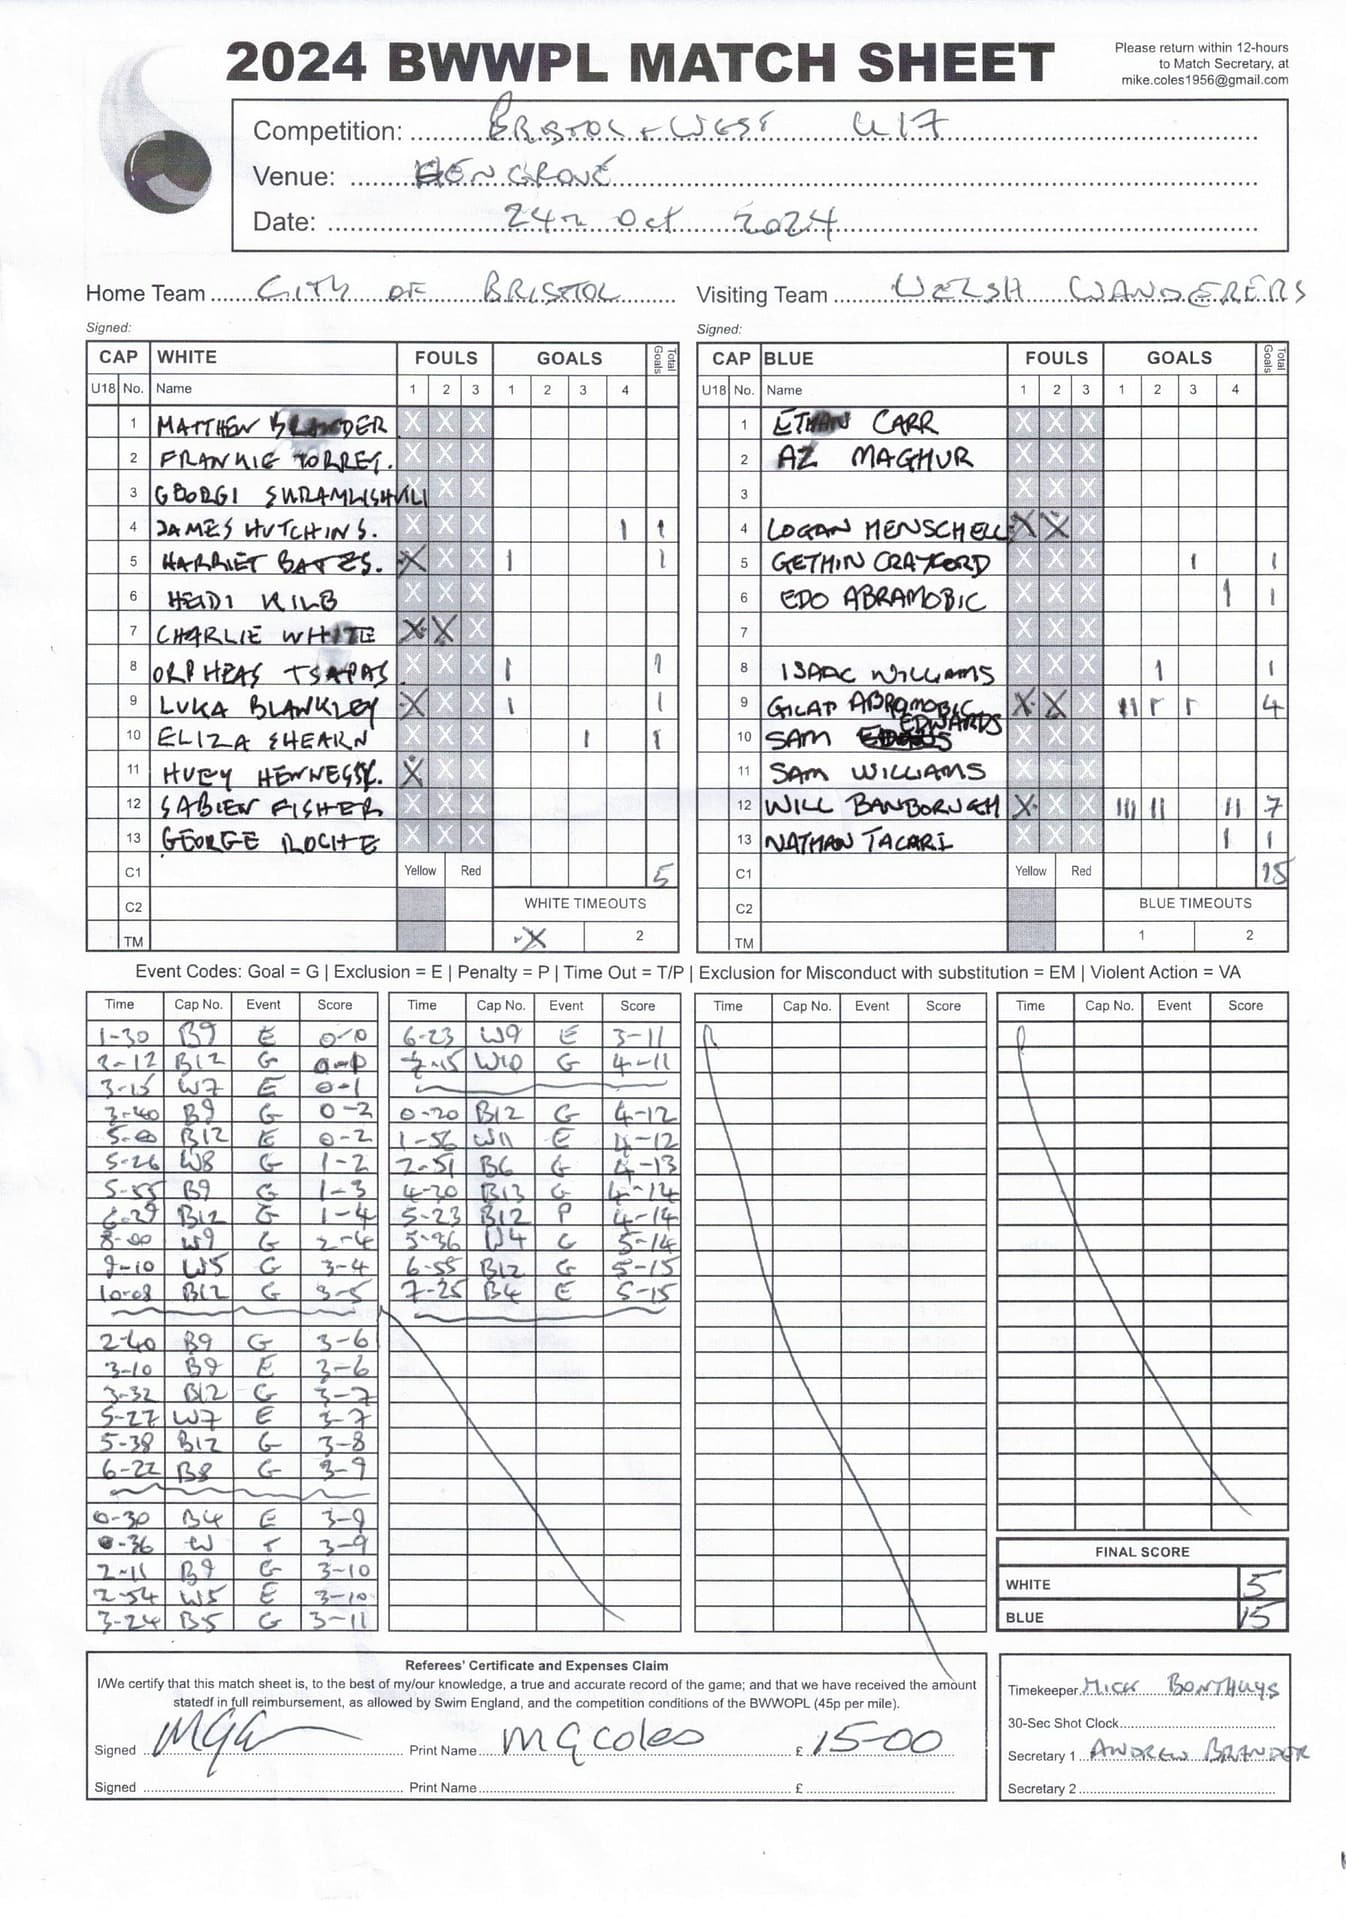 2024 BWWPL MATCH SHEET
Please return within 12-hours
to Match Secretary, at
mike.coles1956@gmail.com
Competition: BRISTOL + WEST U17
Venue: HENGROVE
Date: 24th Oct 2024
Home Team CITY OF BRISTOL
Visiting Team WELSH WANDERERS
Signed:
Signed:
CAP WHITE FOULS GOALS Total Goals
U18 No. Name 1 2 3 1 2 3 4
1 MATTHEW X X X
2 FRANKIE TORREY. X X X
3 GEORGI SURAMLISHVILI X X
4 JAMES HUTCHINS. X X X | 1
5 HARRIET BATES. X X X | 1
6 HEIDI KILB X X X
7 CHARLIE WHITE X X X
8 ORPHEAS TSAPAS X X X | 1
9 LUKA BLANKLEY X X X | 1
10 ELIZA SHEARN X X X | 1
11 HUEY HENNESSY. X X X
12 SABIEN FISHER X X X
13 GEORGE ROCHE X X X
C1 Yellow Red 5
C2 WHITE TIMEOUTS
TM X 2
CAP BLUE FOULS GOALS Total Goals
U18 No. Name 1 2 3 1 2 3 4
1 ETHAN CARR X X X
2 AZ MAGHUR X X X
3 X X X
4 LOGAN HENSCHELL X X X
5 GETHIN CRAXFORD X X X | 1
6 EDO ABRAMOBIC X X X | 1
7 X X X
8 ISAAC WILLIAMS X X X | 1
9 GILAD ABRAMOBIC X X X || | | 4
10 SAM EDWARDS X X X
11 SAM WILLIAMS X X X
12 WILL BANBOROUGH X X X ||| || || 7
13 NATHAN TACARI X X X | 1
C1 Yellow Red 15
C2 BLUE TIMEOUTS
TM 1 2
Event Codes: Goal = G | Exclusion = E | Penalty = P | Time Out = T/P | Exclusion for Misconduct with substitution = EM | Violent Action = VA
Time Cap No. Event Score
1-30 B9 E 0-0
2-12 B12 G 0-1
3-15 W7 E 0-1
3-40 B9 G 0-2
5-00 B12 E 0-2
5-26 W8 G 1-2
5-55 B9 G 1-3
6-29 B12 G 1-4
8-00 W9 G 2-4
9-10 W5 G 3-4
10-08 B12 G 3-5
2-40 B9 G 3-6
3-10 B9 E 3-6
3-32 B12 G 3-7
5-27 W7 E 3-7
5-38 B12 G 3-8
6-22 B8 G 3-9
0-30 B4 E 3-9
0-36 W T 3-9
2-11 B9 G 3-10
2-54 W5 E 3-10
3-24 B5 G 3-11
Time Cap No. Event Score
6-23 W9 E 3-11
7-15 W10 G 4-11
0-20 B12 G 4-12
1-56 W11 E 4-12
2-51 B6 G 4-13
4-30 B13 G 4-14
5-23 B12 P 4-14
5-36 W4 G 5-14
6-55 B12 G 5-15
7-25 B4 E 5-15
Time Cap No. Event Score
Time Cap No. Event Score
FINAL SCORE
WHITE 5
BLUE 15
Referees' Certificate and Expenses Claim
I/We certify that this match sheet is, to the best of my/our knowledge, a true and accurate record of the game; and that we have received the amount
statedf in full reimbursement, as allowed by Swim England, and the competition conditions of the BWWOPL (45p per mile).
Signed Print Name MG Coles £ 15-00
Signed Print Name £
Timekeeper MICK BONTHUYS
30-Sec Shot Clock
Secretary 1 ANDREW BRANDER
Secretary 2